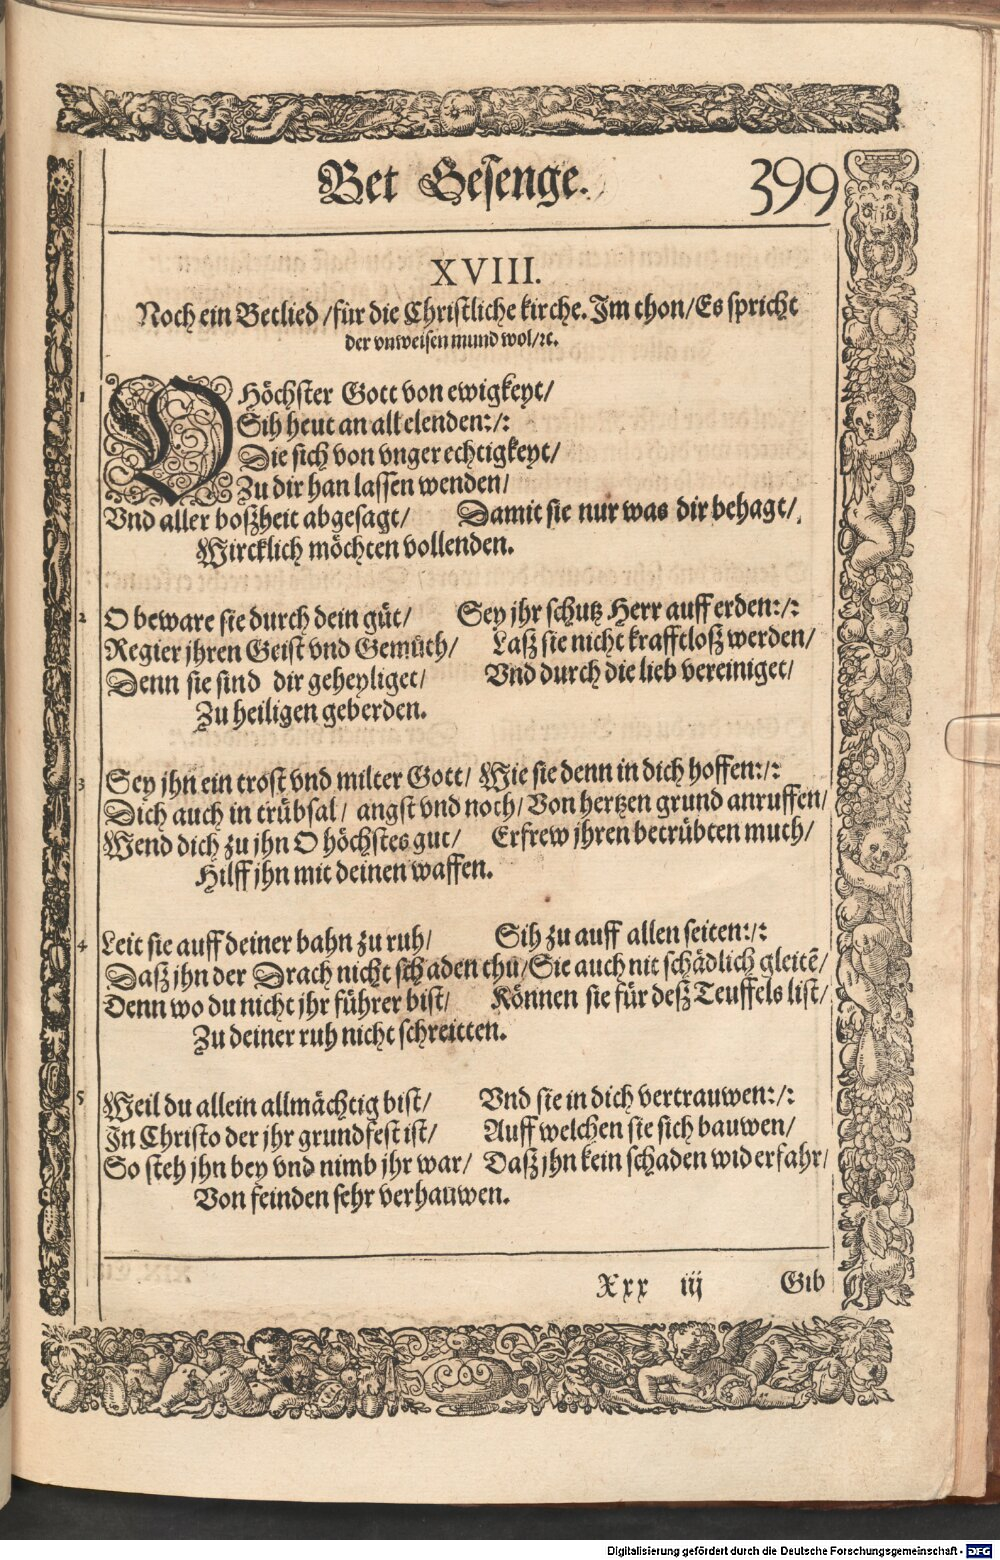 Bet Gesenge. 399
XVIII.
Noch ein Betlied/für die Christliche kirche. Im thon/Es spricht
der vnweisen mund wol/ꝛc.
1 O Höchster Gott von ewigkeyt/
Sih heut an all elenden:/:
Die sich von vngerechtigkeyt/
Zu dir han lassen wenden/
Vnd aller boßheit abgesagt/ Damit sie nur was dir behagt/
Wircklich möchten vollenden.
2 O beware sie durch dein güt/ Sey jhr schutz Herr auff erden:/:
Regier jhren Geist vnd Gemüth/ Laß sie nicht krafftloß werden/
Denn sie sind dir geheyliget/ Vnd durch die lieb vereiniget/
Zu heiligen geberden.
3 Sey jhn ein trost vnd milter Gott/ Wie sie denn in dich hoffen:/:
Dich auch in trübsal/ angst vnd noth/ Von hertzen grund anruffen/
Wend dich zu jhn O höchstes gut/ Erfrew jhren betrübten muth/
Hilff jhn mit deinen waffen.
4 Leit sie auff deiner bahn zu ruh/ Sih zu auff allen seiten:/:
Daß jhn der Drach nicht schaden thu/Sie auch nit schädlich gleitē/
Denn wo du nicht jhr führer bist/ Können sie für deß Teuffels list/
Zu deiner ruh nicht schreitten.
5 Weil du allein allmächtig bist/ Vnd sie in dich vertrauwen:/:
In Christo der jhr grundfest ist/ Auff welchen sie sich bauwen/
So steh jhn bey vnd nimb jhr war/ Daß jhn kein schaden widerfahr/
Von feinden sehr verhauwen.
Xxx iij Gib
Digitalisierung gefördert durch die Deutsche Forschungsgemeinschaft - DFG